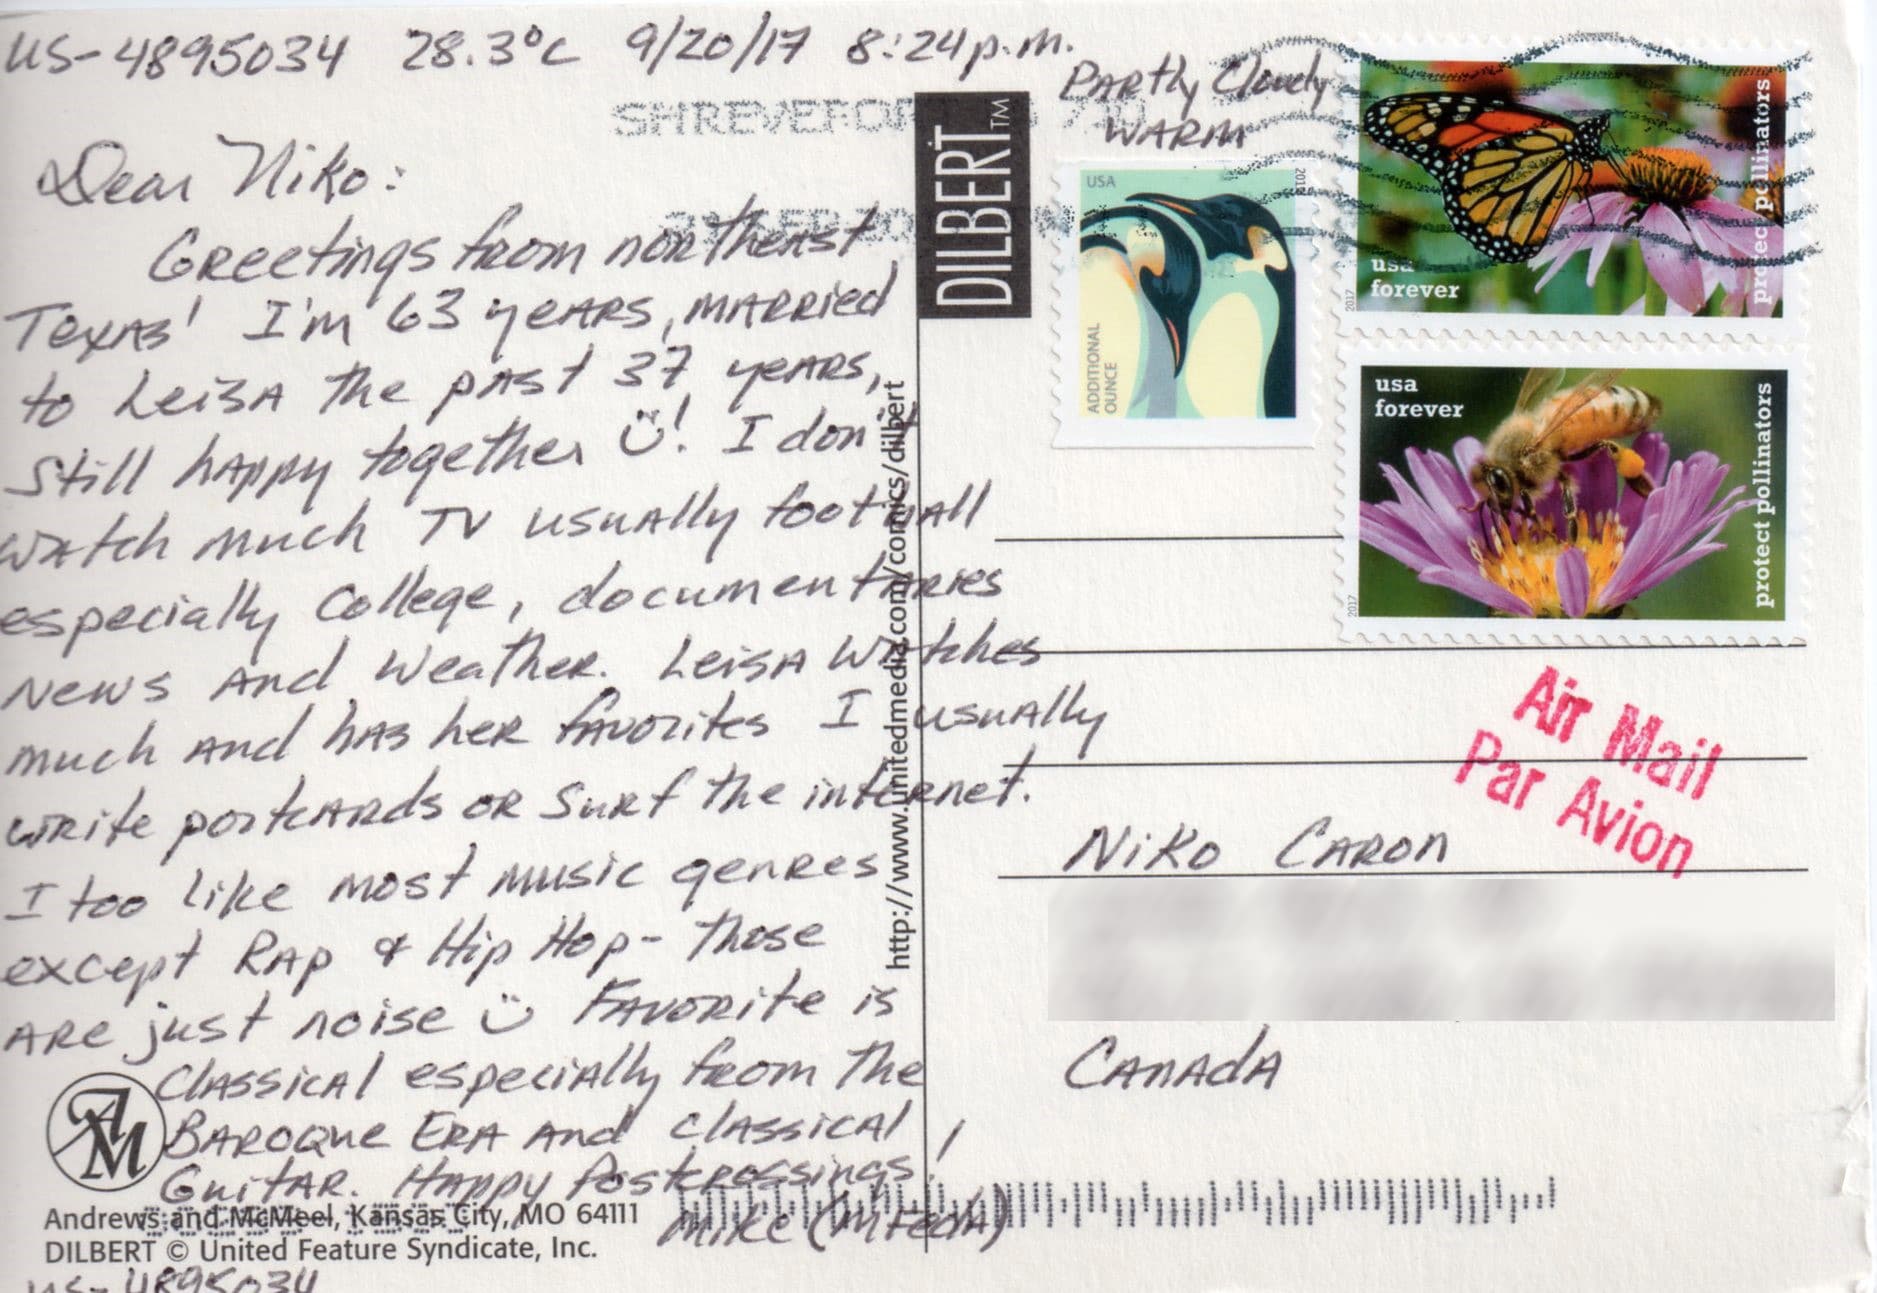 US-4895034 28.3°C 9/20/17 8:24p.m.
Partly Cloudy
Warm
Dear Niko:
Greetings from northeast
Texas! I'm 63 years, married
to Leisa the past 37 years,
still happy together ☺! I don't
watch much TV usually football
especially college, documentaries
news and weather. Leisa watches
much and has her favorites I usually
write postcards or surf the internet.
I too like most music genres
except Rap & Hip Hop- those
are just noise ☺ Favorite is
Classical especially from the
Baroque Era and classical
Guitar. Happy Postcrossings!
Mike
US-4895034
AM
Andrews and McMeel, Kansas City, MO 64111
DILBERT © United Feature Syndicate, Inc.
DILBERT™
http://www.unitedmedia.com/comics/dilbert
USA
ADDITIONAL
OUNCE
usa
forever
protect pollinators
2017
usa
forever
protect pollinators
2017
Air Mail
Par Avion
Niko Caron
Canada